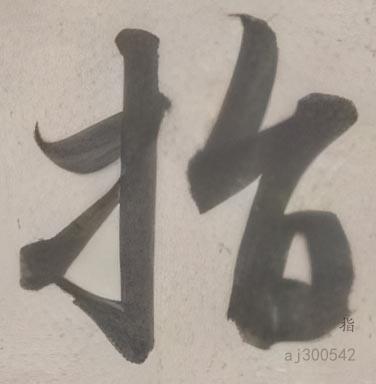 指
指
aj300542